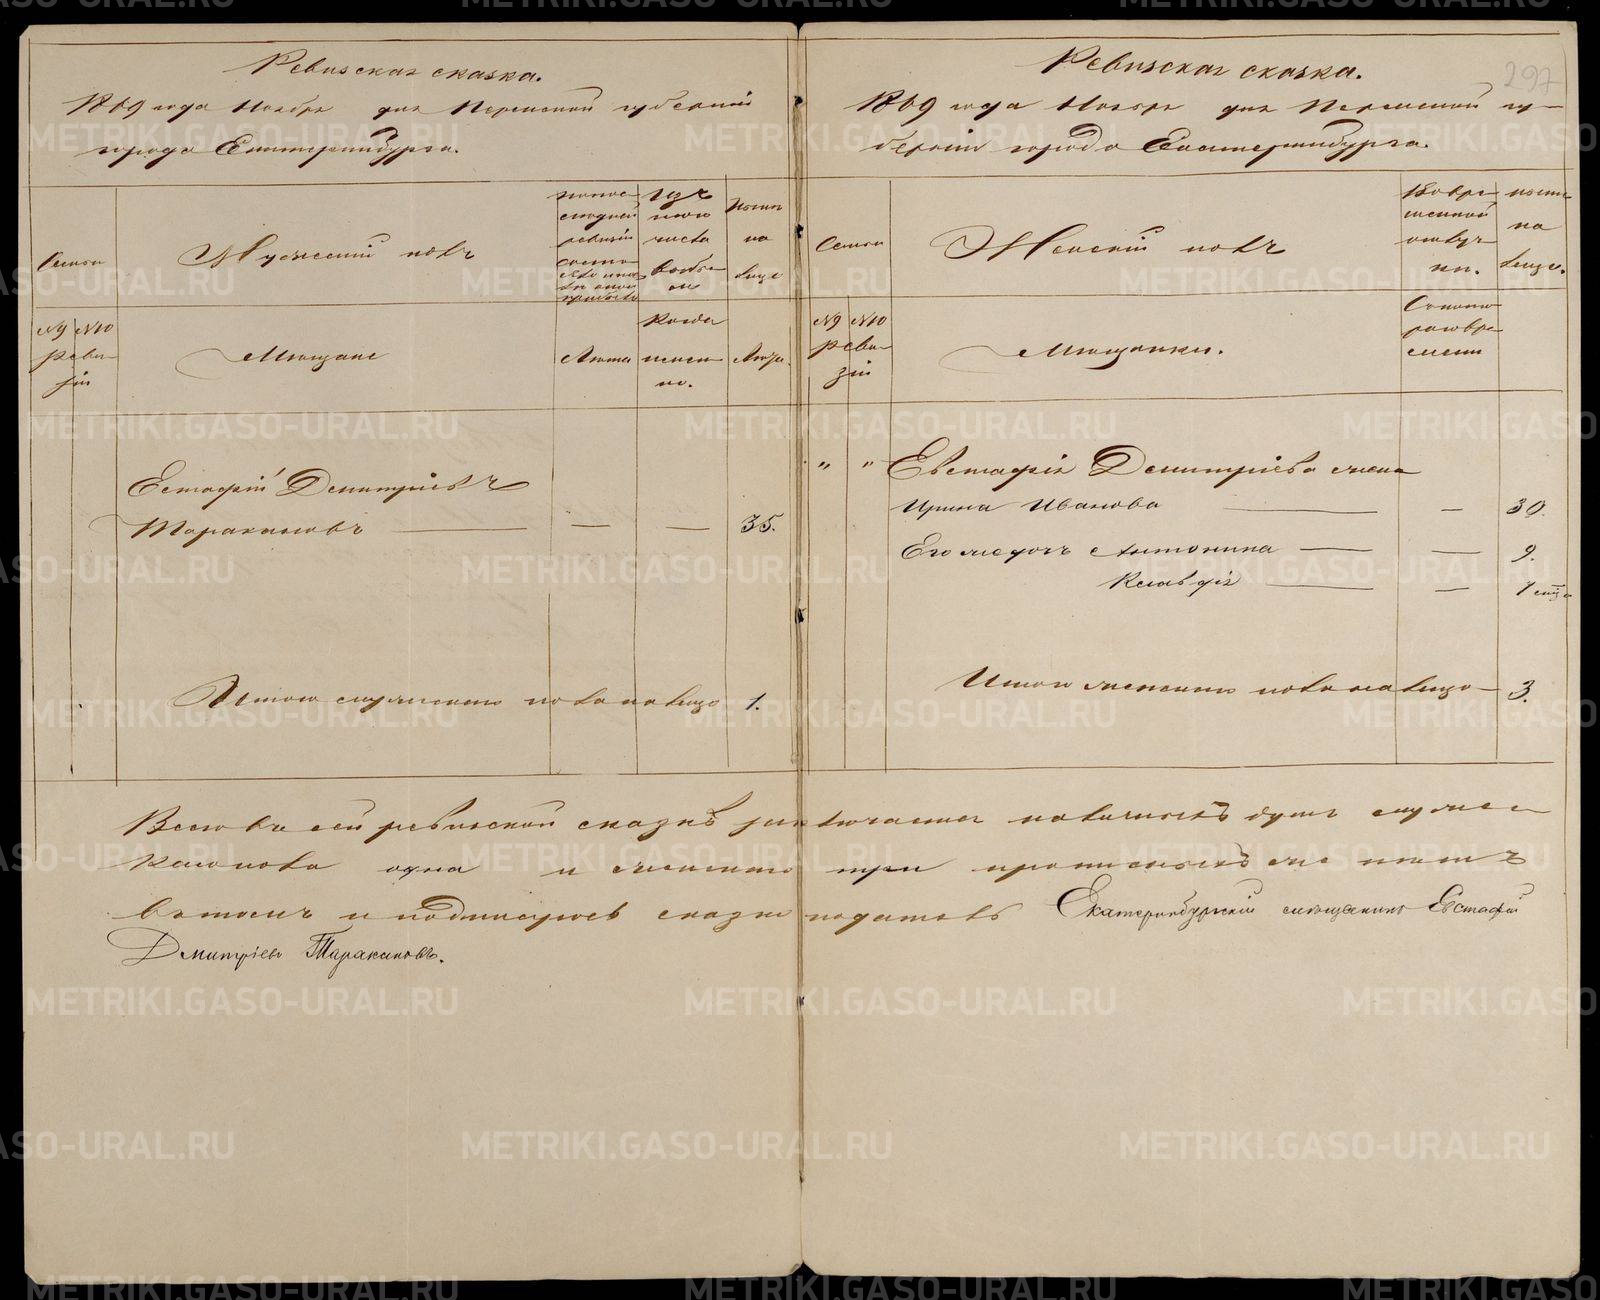 Ревизская сказка.
1869 года Ноября дня Пермской губерніи
города Екатеринбурга.
Семьи
Мужескій полъ
По последней ревизіи состояло
Изъ того числа выбыло
Нынѣ на лице
№9 №10 ревизіи
Мещане
Лета
Когда именно.
Лета.
Естафій Дмитріевъ
Таракановъ 35.
Итого мужескаго пола на лицо 1.
297
Ревизская сказка.
1869 года Ноября дня Пермской гу-
берніи города Екатеринбурга.
Семьи
Женскій полъ
Во временной отлуч-
ки.
ныне на лице.
№9 №10 ревизіи
Мещанки.
Съ какого времени
" " Евстафія Дмитріева жена
Ирина Иванова 30.
Его же дочь Антонина 9.
Клавдія
Итого женскаго пола на лицо 3.
Всего въ сей ревизской сказкѣ заключается наличныхъ душъ мужес-
каго пола одна и женскаго три прописныхъ же нетъ
въ томъ и подписуюсь сказкоподатель Екатеринбургскій мещанинъ Евстафій
Дмитріевъ Таракановъ.
METRIKI.GASO-URAL.RU